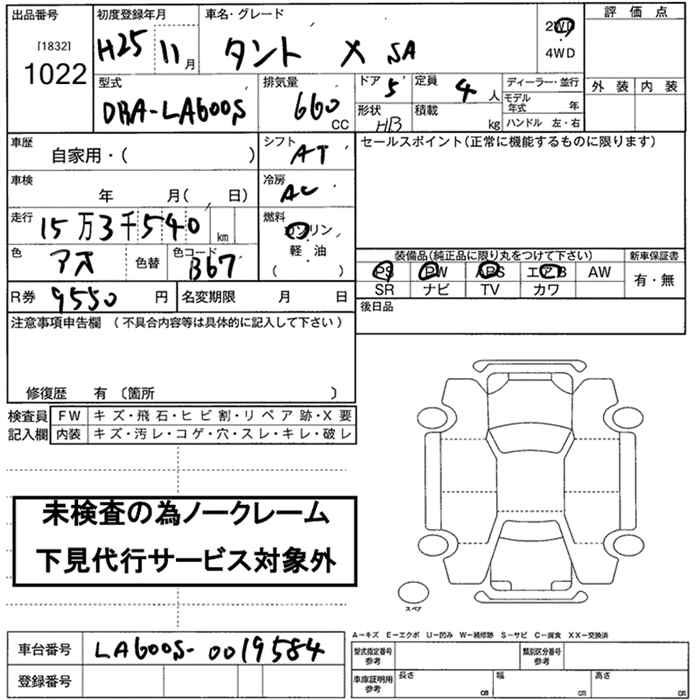 出品番号 初度登録年月 車名・グレード 評価点
[1832] H25 11月 タント X SA 2WD
1022 4WD
型式 排気量 ドア 5 定員 4人 ディーラー・並行 外装 内装
DBA-LA600S 660 CC 形状 HB 積載 kg モデル年式 年
ハンドル 左・右
車歴 シフト セールスポイント(正常に機能するものに限ります)
自家用・( ) AT
車検 年 月( 日) 冷房 AC
走行 15万3千540 km 燃料 ガソリン
軽・油
( )
色 アオ 色替 色コード B67 装備品(純正品に限り丸をつけて下さい) 新車保証書
PS PW ABS エアB AW 有・無
R券 9550 円 名変期限 月 日 SR ナビ TV カワ
注意事項申告欄 (不具合内容等は具体的に記入して下さい) 後日品
修復歴 有 〔箇所 〕
検査員 FW キズ・飛石・ヒビ割・リペア跡・X要
記入欄 内装 キズ・汚レ・コゲ・穴・スレ・キレ・破レ
未検査の為ノークレーム
下見代行サービス対象外
スペア
A-キズ E-エクボ U-凹み W-補修跡 S-サビ C-腐食 XX-交換済
車台番号 LA600S-0019584 型式指定番号 参考 類別区分番号 参考
登録番号 車庫証明用 参考 長さ cm 幅 cm 高さ cm